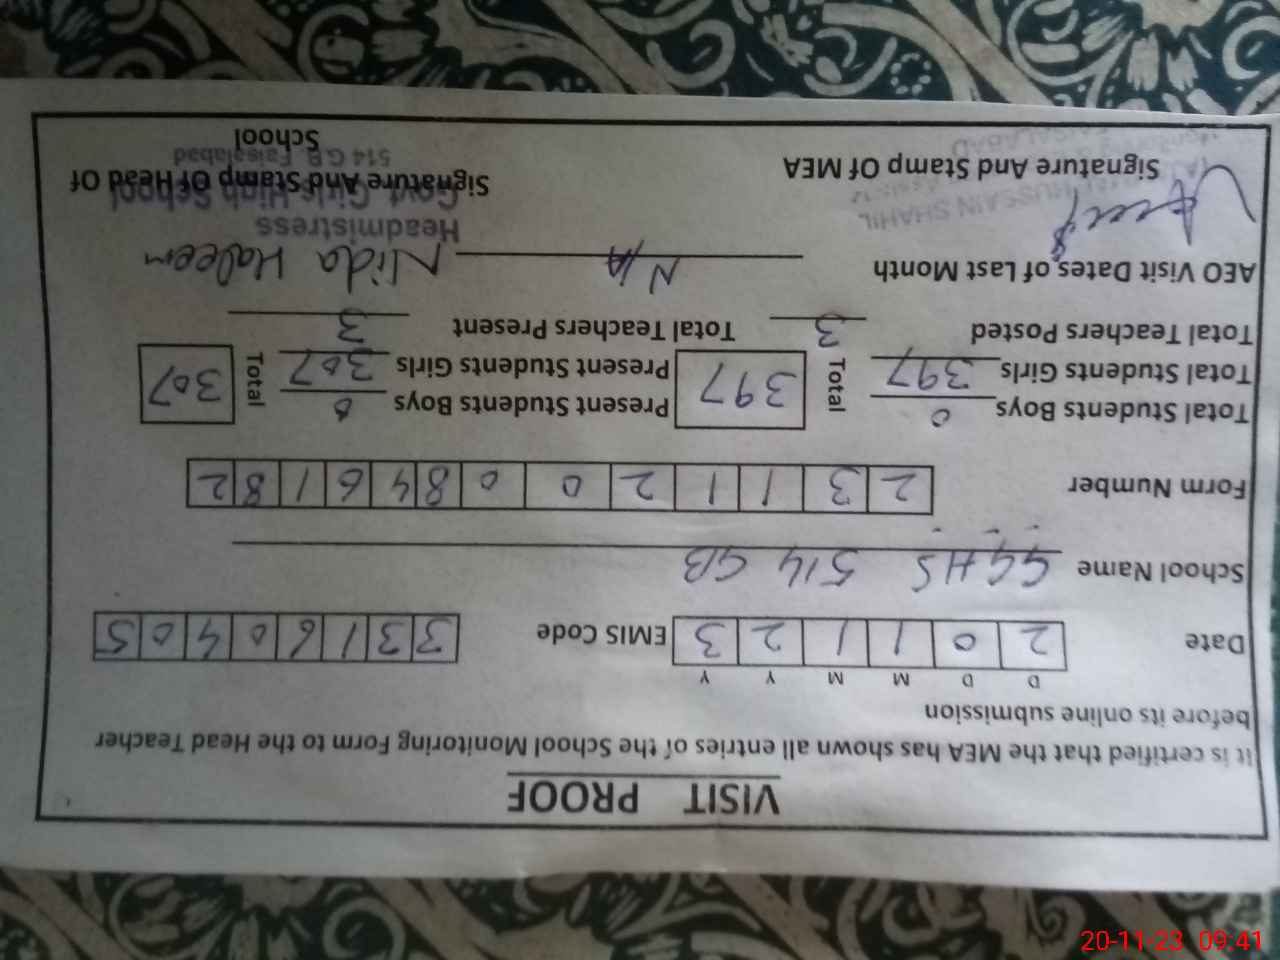 VISIT PROOF
It is certified that the MEA has shown all entries of the School Monitoring Form to the Head Teacher
before its online submission
D D M M Y Y
Date 2 0 1 1 2 3 EMIS Code 3 3 1 6 0 4 0 5
School Name GGHS 514 GB
Form Number 2 3 1 1 2 0 0 8 4 6 1 8 2
Total Students Boys 0 Total 397 Present Students Boys 0 Total 307
Total Students Girls 397 Present Students Girls 307
Total Teachers Posted 3 Total Teachers Present 3
AEO Visit Dates of Last Month N/A Nida Haleem
Headmistress
HUSSAIN SHAHIL
Govt. Girls High School
Signature And Stamp Of MEA Signature And Stamp Of Head Of
514 G.B. Faisalabad
FAISALABAD
School
20-11-23 09:41